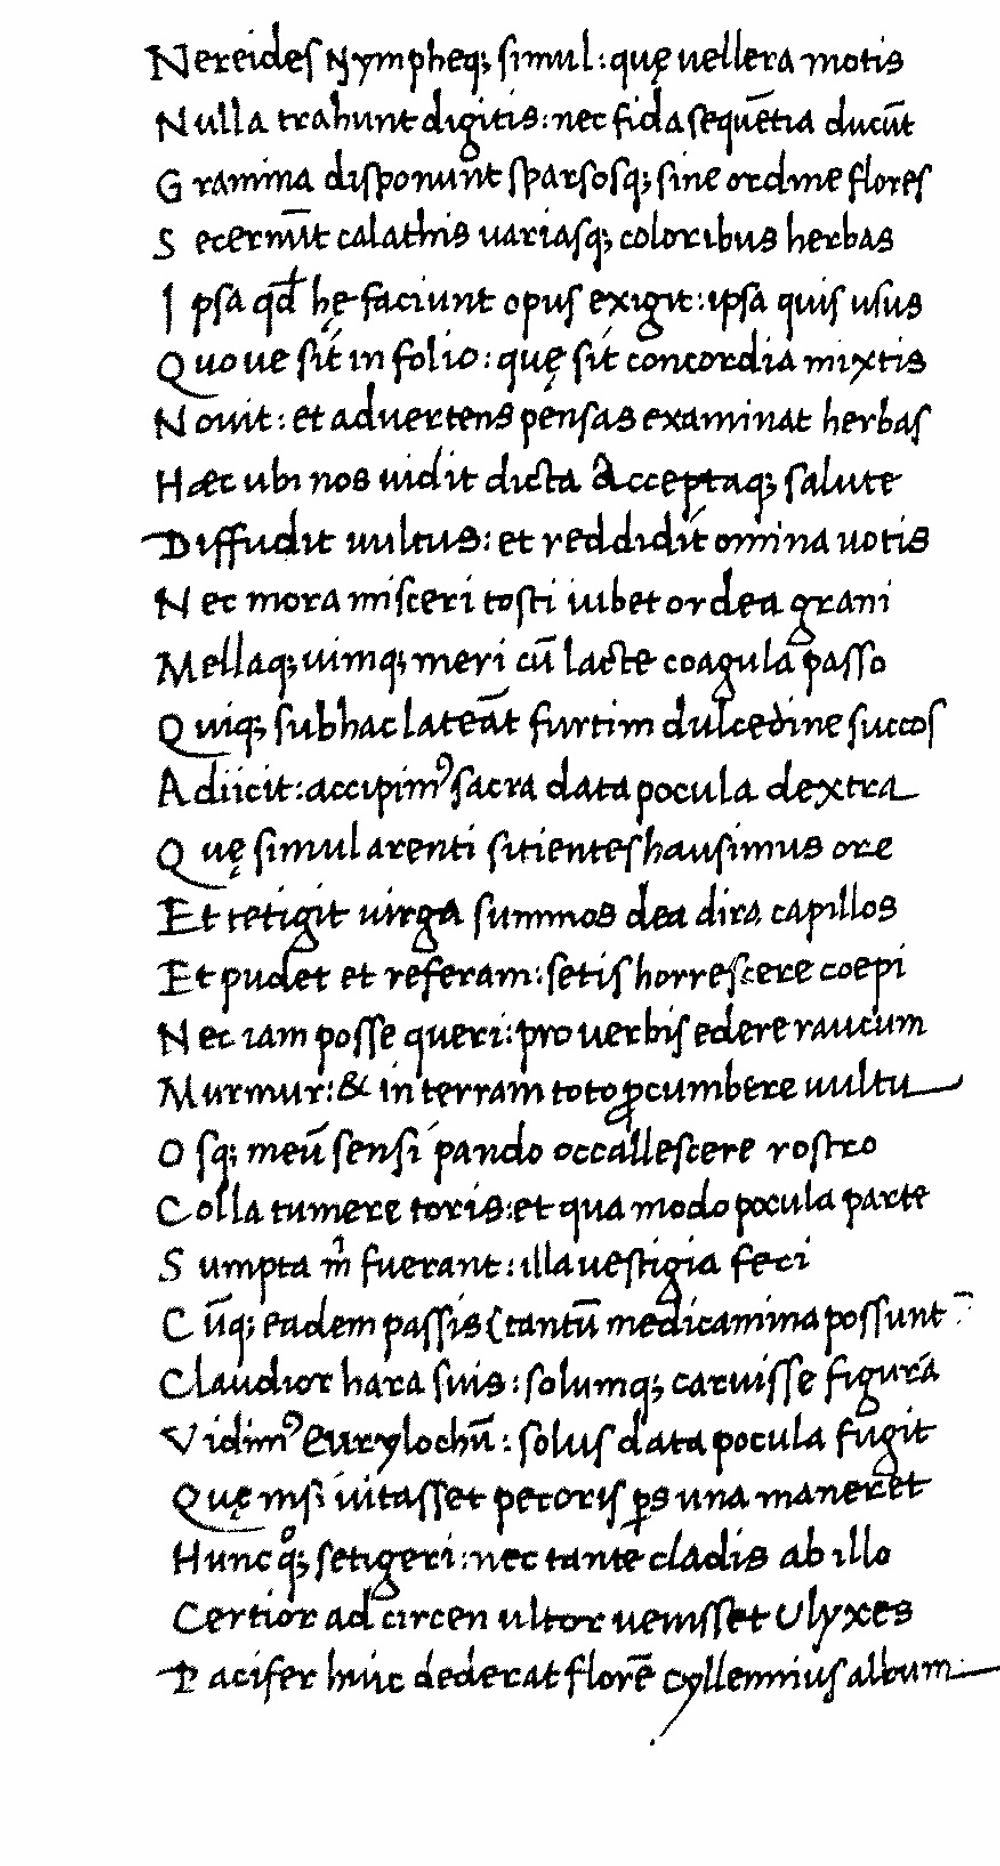 Nereides Nympheq; simul: quę uellera motis
Nulla trahunt digitis: nec fida sequētia ducūt
Gramina disponunt sparsosq; sine ordine flores
Secernūt calathis uariasq; coloribus herbas
Ipsa qđ hę faciunt opus exigit: ipsa quis usus
Quoue sit in folio: quę sit concordia mixtis
Nouit: et aduertens pensas examinat herbas
Hæc ubi nos uidit dicta Acceptaq; salute
Diffudit uultus: et reddidit omina uotis
Nec mora misceri tosti iubet ordea grani
Mellaq; uimq; meri cū lacte coagula passo
Quiq; sub hac lateāt furtim dulcedine succos
Adiicit: accipimꝰ sacra data pocula dextra
Quę simul arenti sitientes hausimus ore
Et tetigit uirga summos dea dira capillos
Et pudet et referam: setis horrescere coepi
Nec iam posse queri: pro uerbis edere raucum
Murmur: & in terram toto ꝓcumbere uultu
Osq; meū sensi pando occallescere rostro
Colla tumere toris: et qua modo pocula parte
Sumpta m̊ fuerant: illa uestigia feci
Cūq; eadem passis (tantū medicamina possunt
Claudior hara suis: solumq; caruisse figura
Vidimꝰ Eurylochū: solus data pocula fugit
Quę nisi uitasset pecoris ꝑs una maneret
Hunc qͦq; setigeri: nec tante cladis ab illo
Certior ad circen ultor uenisset Ulyxes
Pacifer huic dederat florē cyllennius album